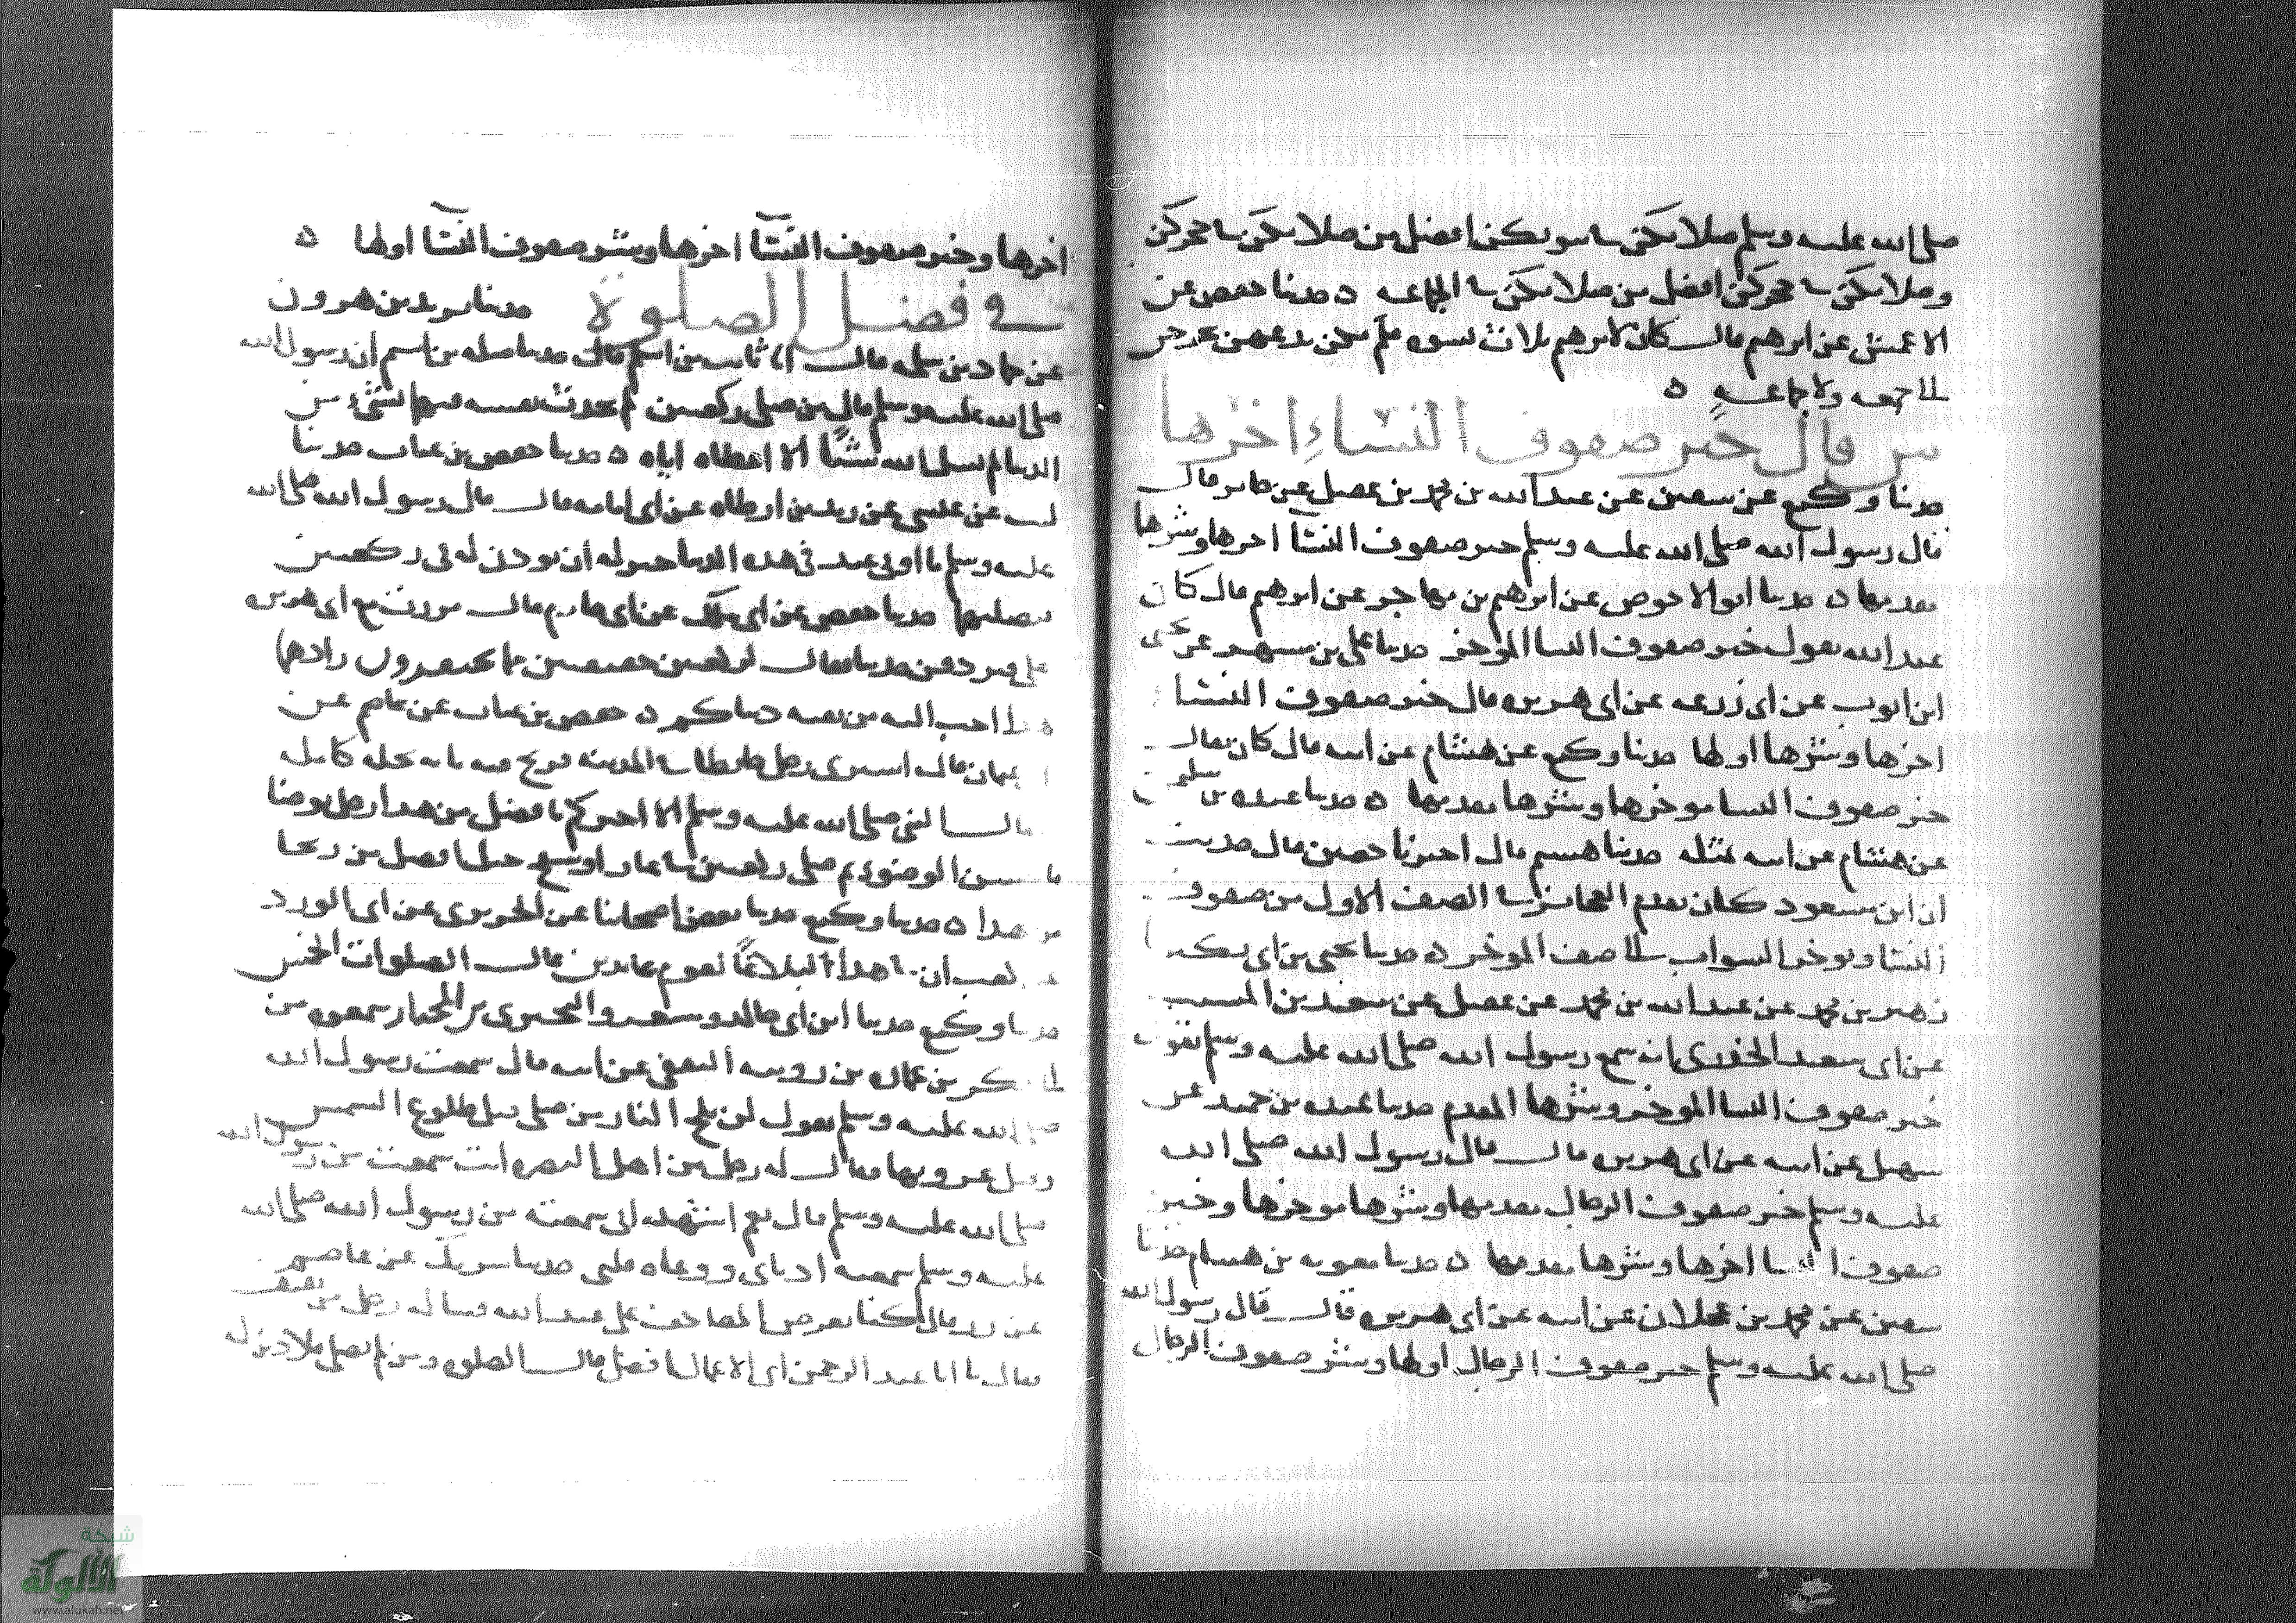 صلى الله عليه وسلم صلاتكن في بيوتكن افضل من صلاتكن في حجركن
وصلاتكن في حجركن افضل من صلاتكن في الجماعه ه حدثنا حفص عن
الاعمش عن ابرهيم قال كان لابرهيم ثلاث نسوه فلم يكن يدعهن يخرجن
الى جمعه ولا جماعه ه
من قال خير صفوف النساء اخرها
حدثنا وكيع عن سفين عن عبد الله بن محمد بن عقيل عن جابر قال
قال رسول الله صلى الله عليه وسلم خير صفوف النسا اخرها وشرها
مقدمها ه حدثنا ابو الاحوص عن ابرهيم بن مهاجر عن ابرهيم قال كان
عبد الله يقول خير صفوف النسا الموخر حدثنا علي بن مسهر عن يحيى
ابن ايوب عن ابي زرعه عن ابي هريره قال خير صفوف النسا
اخرها وشرها اولها حدثنا وكيع عن هشام عن ابيه قال كان يقال
خير صفوف النسا موخرها وشرها مقدمها ه حدثنا عبده بن سليمن
عن هشام عن ابيه بمثله حدثنا هشيم قال اخبرنا حصين قال حديث
ان ابن مسعود كان يقدم العجائز في الصف الاول من صفوف
النسا ويوخر الشواب الى الصف الموخر ه حدثنا يحيى بن ابي بكير
زهير بن محمد عن عبد الله بن محمد عن عقيل عن سعيد بن المسيب
عن ابي سعيد الخدري انه سمع رسول الله صلى الله عليه وسلم يقول
خير صفوف النسا الموخر وشرها المقدم حدثنا عبيده بن حميد عن
سهيل عن ابيه عن ابي هريره قال قال رسول الله صلى الله
عليه وسلم خير صفوف الرجال مقدمها وشرها موخرها وخير
صفوف النسا اخرها وشرها مقدمها ه حدثنا معويه بن هشام حدثنا
سفين عن محمد بن عجلان عن ابيه عن ابي هريره قال قال رسول الله
صلى الله عليه وسلم خير صفوف الرجال اولها وشر صفوف الرجال
اخرها وخير صفوف النسا اخرها وشر صفوف النسا اولها ه
في فضل الصلوة حدثنا يزيد بن هرون
عن حماد بن سلمه قال انا ثابت بن اسلم قال حدثنا صله بن اشيم ان رسول الله
صلى الله عليه وسلم قال من صلى ركعتين لم يحدث نفسه فيهما بشيء من
الدنيا لم يسل الله شيئا الا اعطاه اياه ه حدثنا حفص بن غياث حدثنا
ليث عن عيسى عن زيد بن ارطاه عن ابي امامه قال قال رسول الله صلى الله
عليه وسلم ما اوتي عبد في هذه الدنيا خير له من ان يوذن له في ركعتين
يصليهما حدثنا حفص عن ابي ملك عن ابي حازم قال مررت مع ابي هريره
على قبر دفن حديثا فقال لركعتين خفيفتين مما تحتقرون زادهما
هذا احب اليه من بقيه دنياكم ه حفص بن غياث عن عاصم عن
عثمان قال اشترى رجل حايطا في المدينه فربح فيه مايه نخله كامله
فقال النبي صلى الله عليه وسلم الا اخبركم بافضل من هذا رجل توضا
فاحسن الوضوء ثم صلى ركعتين في غار او سفح جبل افضل ربحا
من هذا ه حدثنا وكيع حدثنا بعض اصحابنا عن الجريري عن ابي الورد
عن كعب ان في هذا لبلاغا لقوم عابدين قال الصلوات الخمس
حدثنا وكيع حدثنا ابن ابي خالد ومسعر والبختري بن المختار سمعوه من
ابي بكر بن عماره بن رويبه الثقفي عن ابيه قال سمعت رسول الله
صلى الله عليه وسلم يقول لن يلج النار من صلى قبل طلوع الشمس
وقبل غروبها فقال له رجل من اهل البصره انت سمعت من رسول الله
صلى الله عليه وسلم قال نعم اشهد لاني سمعته من رسول الله صلى الله
عليه وسلم سمعته اذناي ووعاه قلبي حدثنا شريك عن عاصم
عن زر قال كنا نعرض المصاحف على عبد الله فساله رجل من ثقيف
فقال يا ابا عبد الرحمن اي الاعمال افضل قال الصلوه ومن لم يصل فلا دين له
شبكة
الألوكة
www.alukah.net